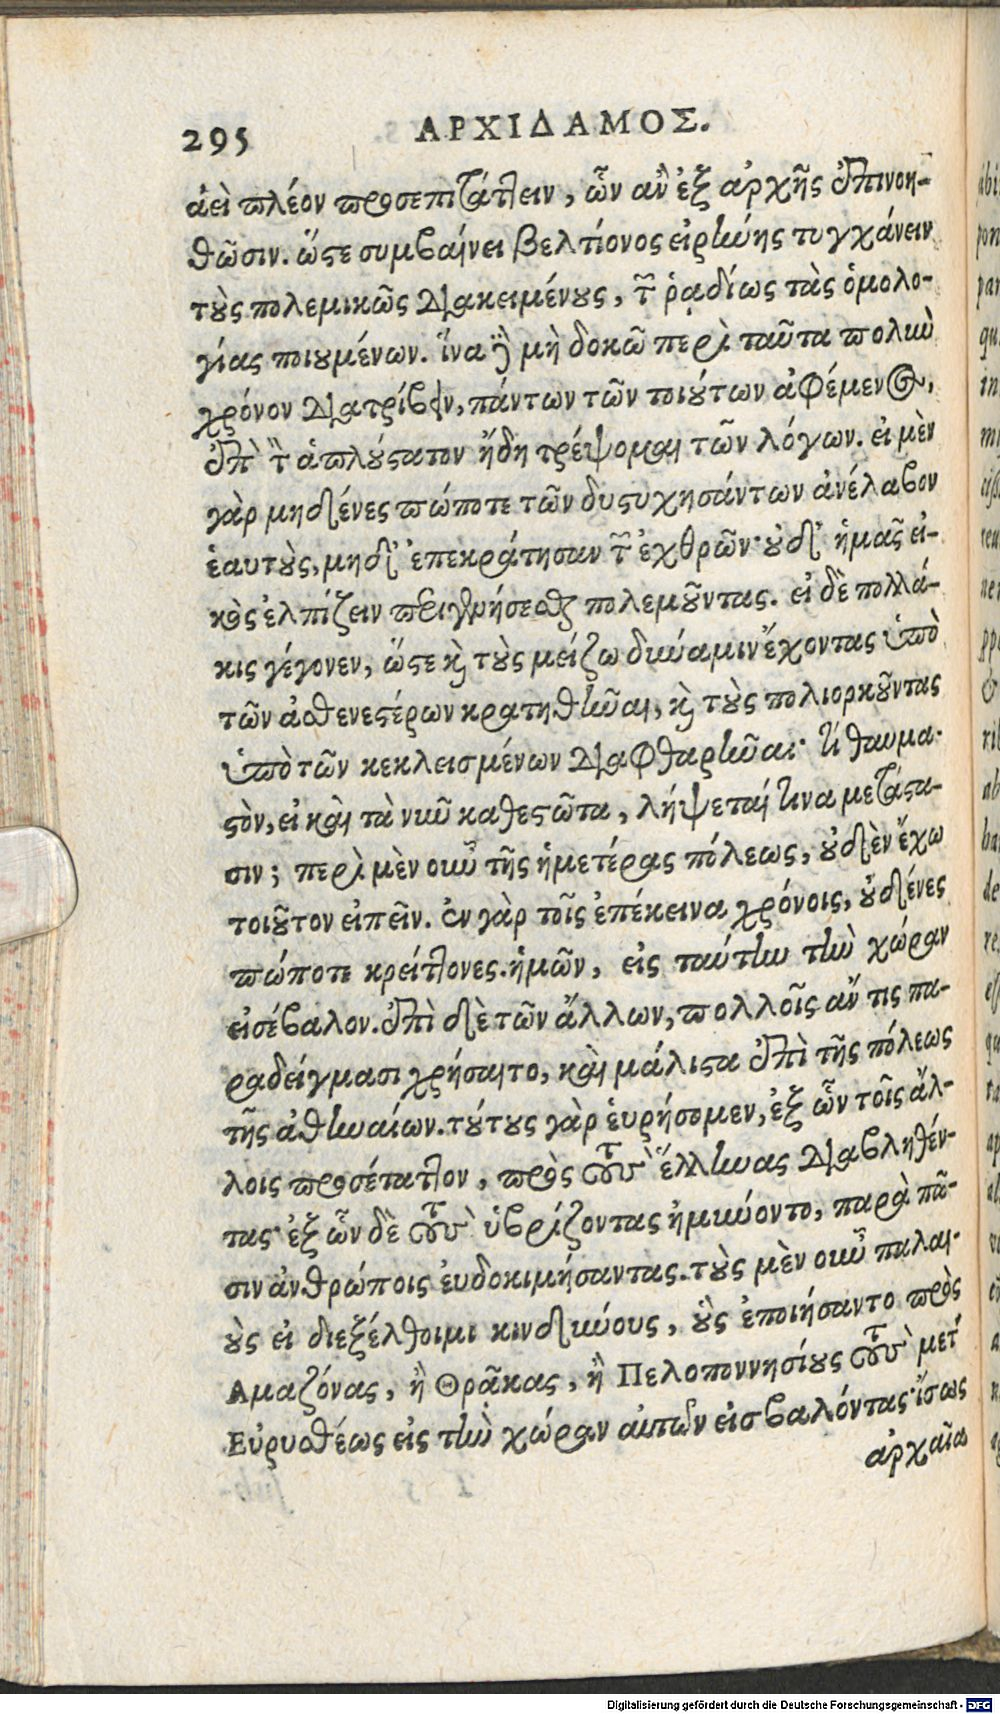 295 ΑΡΧΙΔΑΜΟΣ.
ἀεὶ πλέον προσεπιτάτλειν, ὧν ἂν ἐξ ἀρχῆς ἐπινοη-
θῶσιν. ὥστε συμβαίνει βελτίονος εἰρήνης τυγχάνειν
τοὺς πολεμικῶς διακειμένους, τῶν ῥᾳδίως τὰς ὁμολο-
γίας ποιουμένων. ἵνα δὲ μὴ δοκῶ περὶ ταῦτα πολὺ
χρόνον διατρίβειν, πάντων τῶν τοιούτων ἀφέμενος,
ἐπὶ τὸ ἁπλούστατον ἤδη τρέψομαι τῶν λόγων. εἰ μὲν
γὰρ μηδένες πώποτε τῶν δυστυχησάντων ἀνέλαβον
ἑαυτοὺς, μηδ' ἐπεκράτησαν τῶν ἐχθρῶν· οὐδ' ἡμᾶς εἰ-
κὸς ἐλπίζειν περιγενήσεσθαι πολεμοῦντας. εἰ δὲ πολλά-
κις γέγονεν, ὥστε καὶ τοὺς μείζω δύναμιν ἔχοντας ὑπὸ
τῶν ἀσθενεστέρων κρατηθῆναι, καὶ τοὺς πολιορκοῦντας
ὑπὸ τῶν κεκλεισμένων διαφθαρῆναι· τί θαυμα-
στὸν, εἰ καὶ τὰ νῦν καθεστῶτα, λήψεταί τινα μετάστα-
σιν; περὶ μὲν οὖν τῆς ἡμετέρας πόλεως, οὐδὲν ἔχω
τοιοῦτον εἰπεῖν. ἐν γὰρ τοῖς ἐπέκεινα χρόνοις, οὐδένες
πώποτε κρείτλονες ἡμῶν, εἰς ταύτην τὴν χώραν
εἰσέβαλον. ἐπὶ δὲ τῶν ἄλλων, πολλοῖς ἄν τις πα-
ραδείγμασι χρήσαιτο, καὶ μάλιστα ἐπὶ τῆς πόλεως
τῆς ἀθηναίων. τούτους γὰρ εὑρήσομεν, ἐξ ὧν τοῖς ἄλ-
λοις προσέτατλον, πρὸς τοὺς ἕλληνας διαβληθέν-
τας· ἐξ ὧν δὲ τοὺς ὑβρίζοντας ἠμύνοντο, παρὰ πᾶ-
σιν ἀνθρώποις εὐδοκιμήσαντας. τοὺς μὲν οὖν παλαι-
οὺς εἰ διεξέλθοιμι κινδύνους, οὓς ἐποιήσαντο πρὸς
Αμαζόνας, ἢ Θρᾷκας, ἢ Πελοποννησίους τοὺς μετ'
Εὐρυσθέως εἰς τὴν χώραν αὐτῶν εἰσβαλόντας· ἴσως
ἀρχαῖα
Digitalisierung gefördert durch die Deutsche Forschungsgemeinschaft - DFG